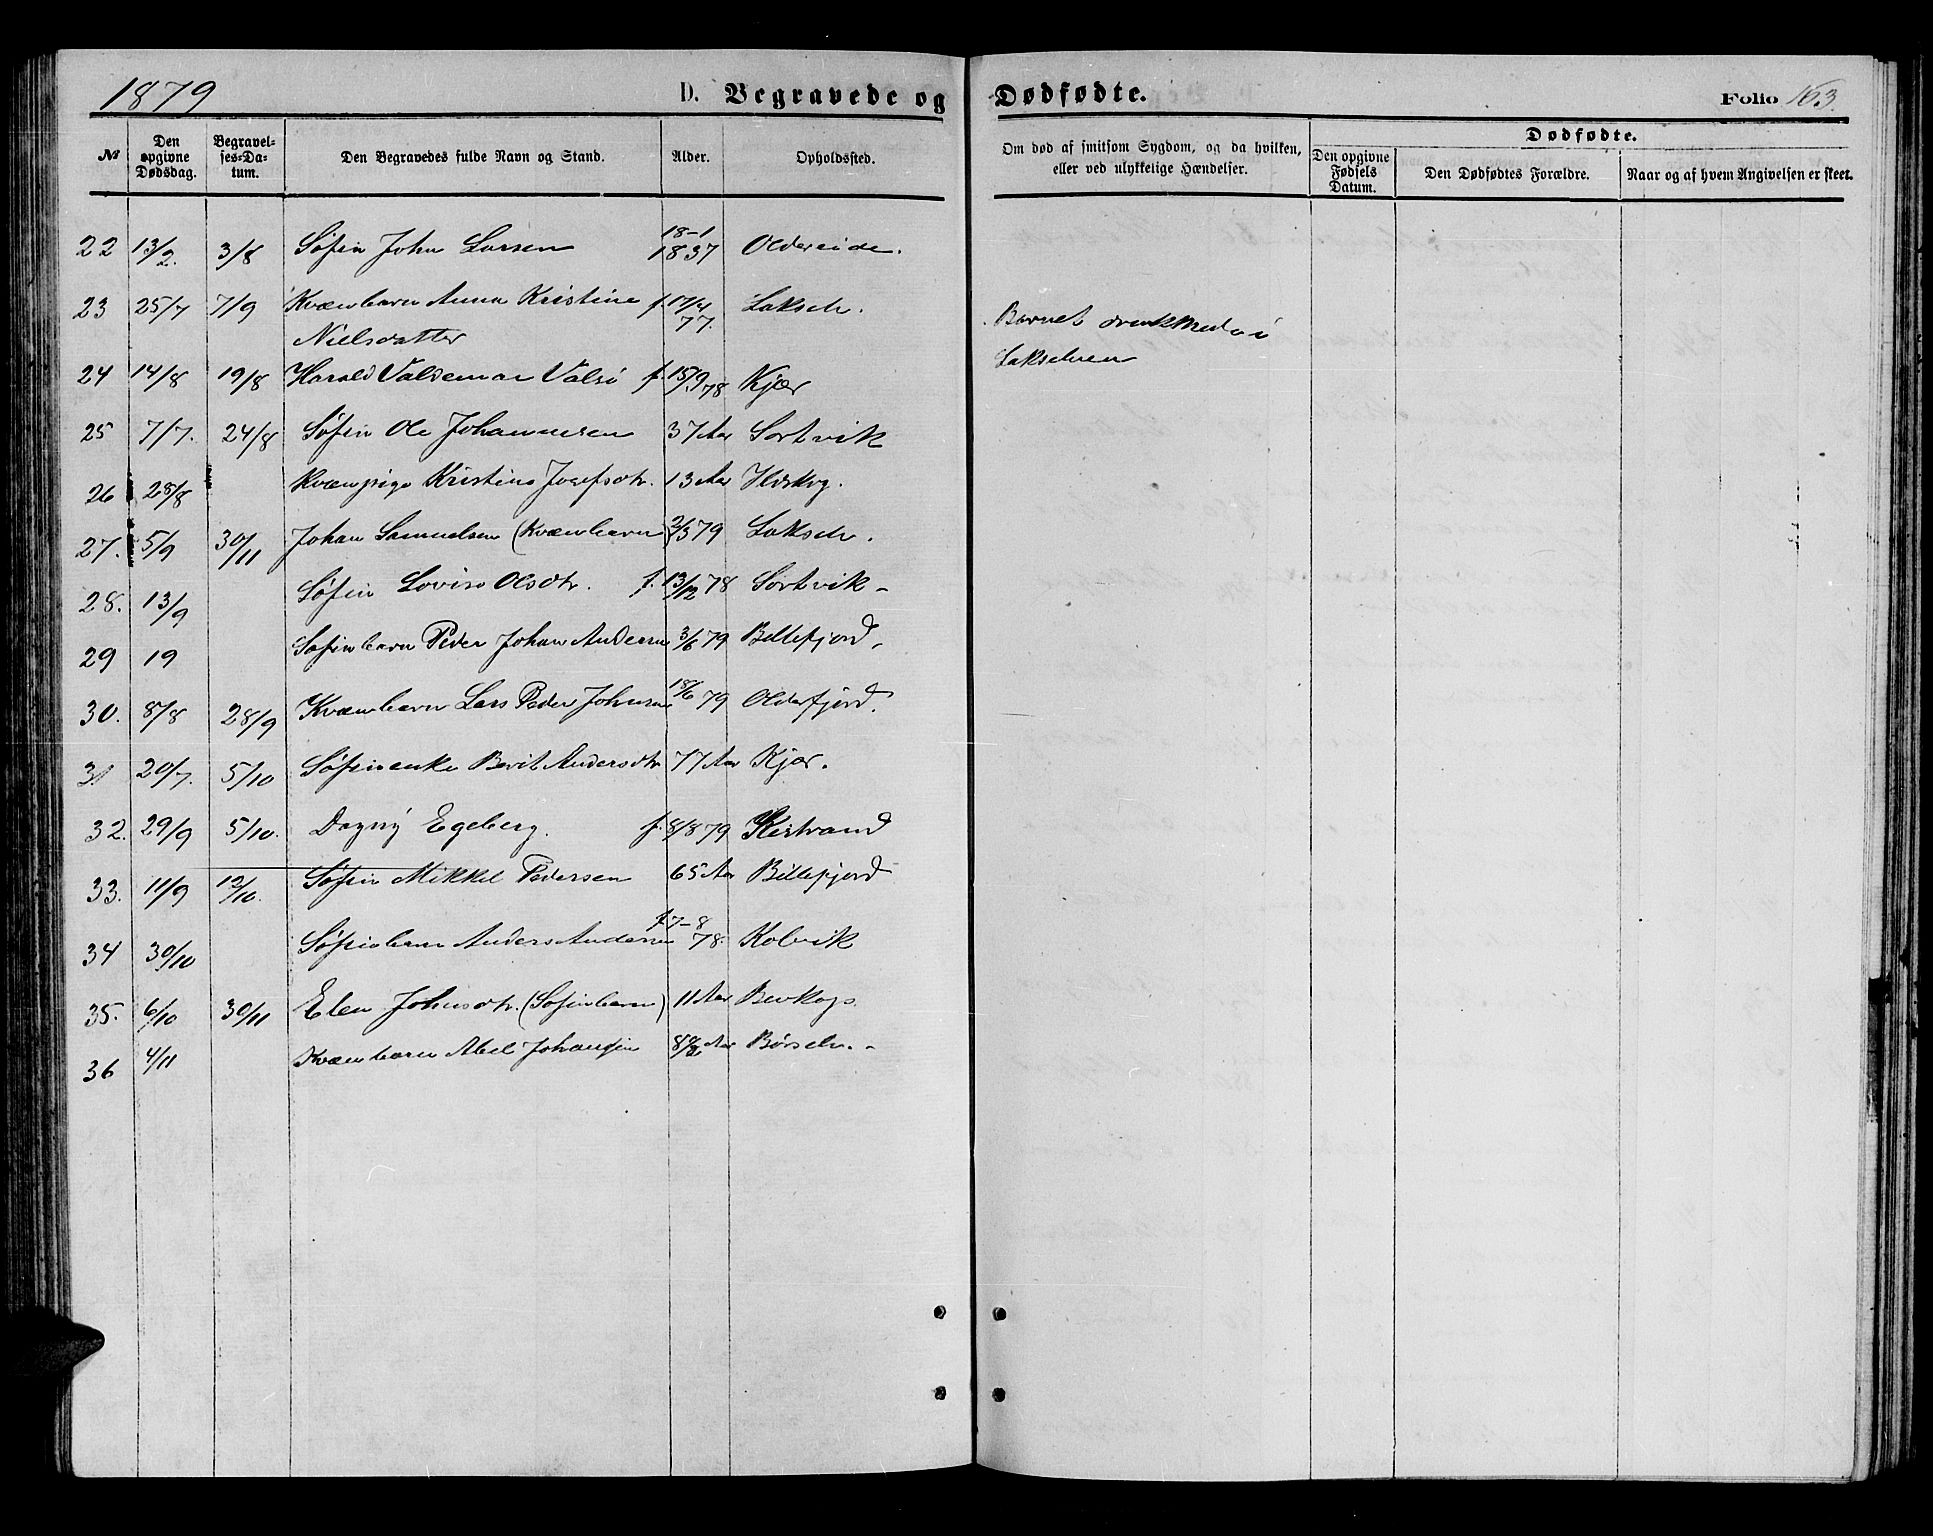 1879 D. Begravede og Dødfødte. Folio 163.
№ Den opgivne Dødsdag. Begravelses-Datum. Den Begravedes fulde Navn og Stand. Alder. Opholdssted. Om død af smitsom Sygdom, og da hvilken, eller ved ulykkelige Hændelser. Dødfødte. Den opgivne Fødsels Datum. Den Dødfødtes Forældre. Naar og af hvem Angivelsen er skeet.
22 13/2. 3/8 Søfin John Larsen 18-1 1837 Oldereide.
23 25/7 7/9 Kvænbarn Anna Kristine f. 17/4 77. Lakselv. Barnet druknede i
Nielsdatter Lakselven
24 14/8 19/8 Harald Valdemar Valsö f. 15/9 78 Kjær
25 7/7. 24/8 Søfin Ole Johannesen 37 Aar Sortvik
26 28/8 Kvænpige Kristine Josefsdtr. 13 Aar
27. 5/9 30/11 Johan Samuelsen (Kvænbarn) 2/3 79 Lakselv.
28. 13/9 Søfin Lovisa Olsdtr. f. 13/12 78 Sortvik
29 19 Søfinbarn Peder Johan Andersen 3/6 79 Billefjord
30. 8/8 28/9 Kvænbarn Lars Peder Johnsen 18/6 79 Olderfjord.
31 20/7. 5/10 Søfinenke Berit Andersdtr 77 Aar Kjær.
32. 29/9 5/10. Dagny Egeberg. f. 8/8 79 Kistrand
33. 11/9 12/10. Søfin Mikkel Pedersen 65 Aar Billefjord
34 30/10 Søfinbarn Anders Andersen f. 7-8 78. Kolvik
35. 6/10 30/11 Elen Johnsdtr. (Søfinbarn) 11 Aar
36 4/11 Kvænbarn Abel Johansen Aar Børselv.